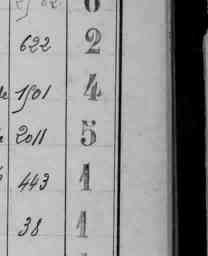 622 2
1501 4
2011 5
443 1
38 1